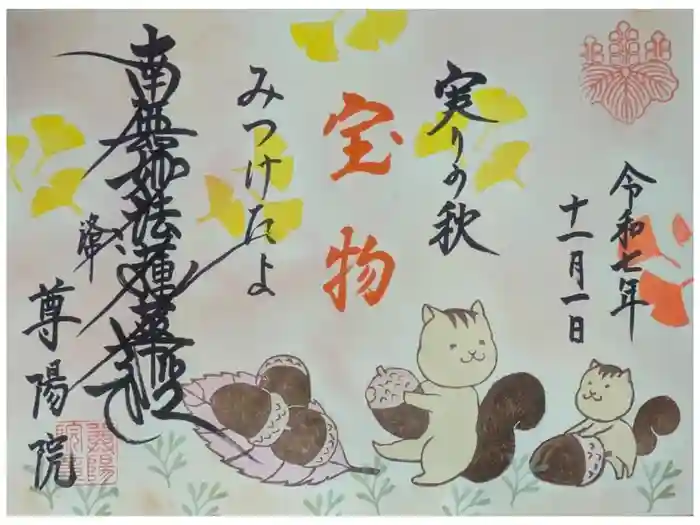 令和七年
十一月一日
実りの秋
宝物
みつけたよ
南無妙法蓮華経
尊陽院